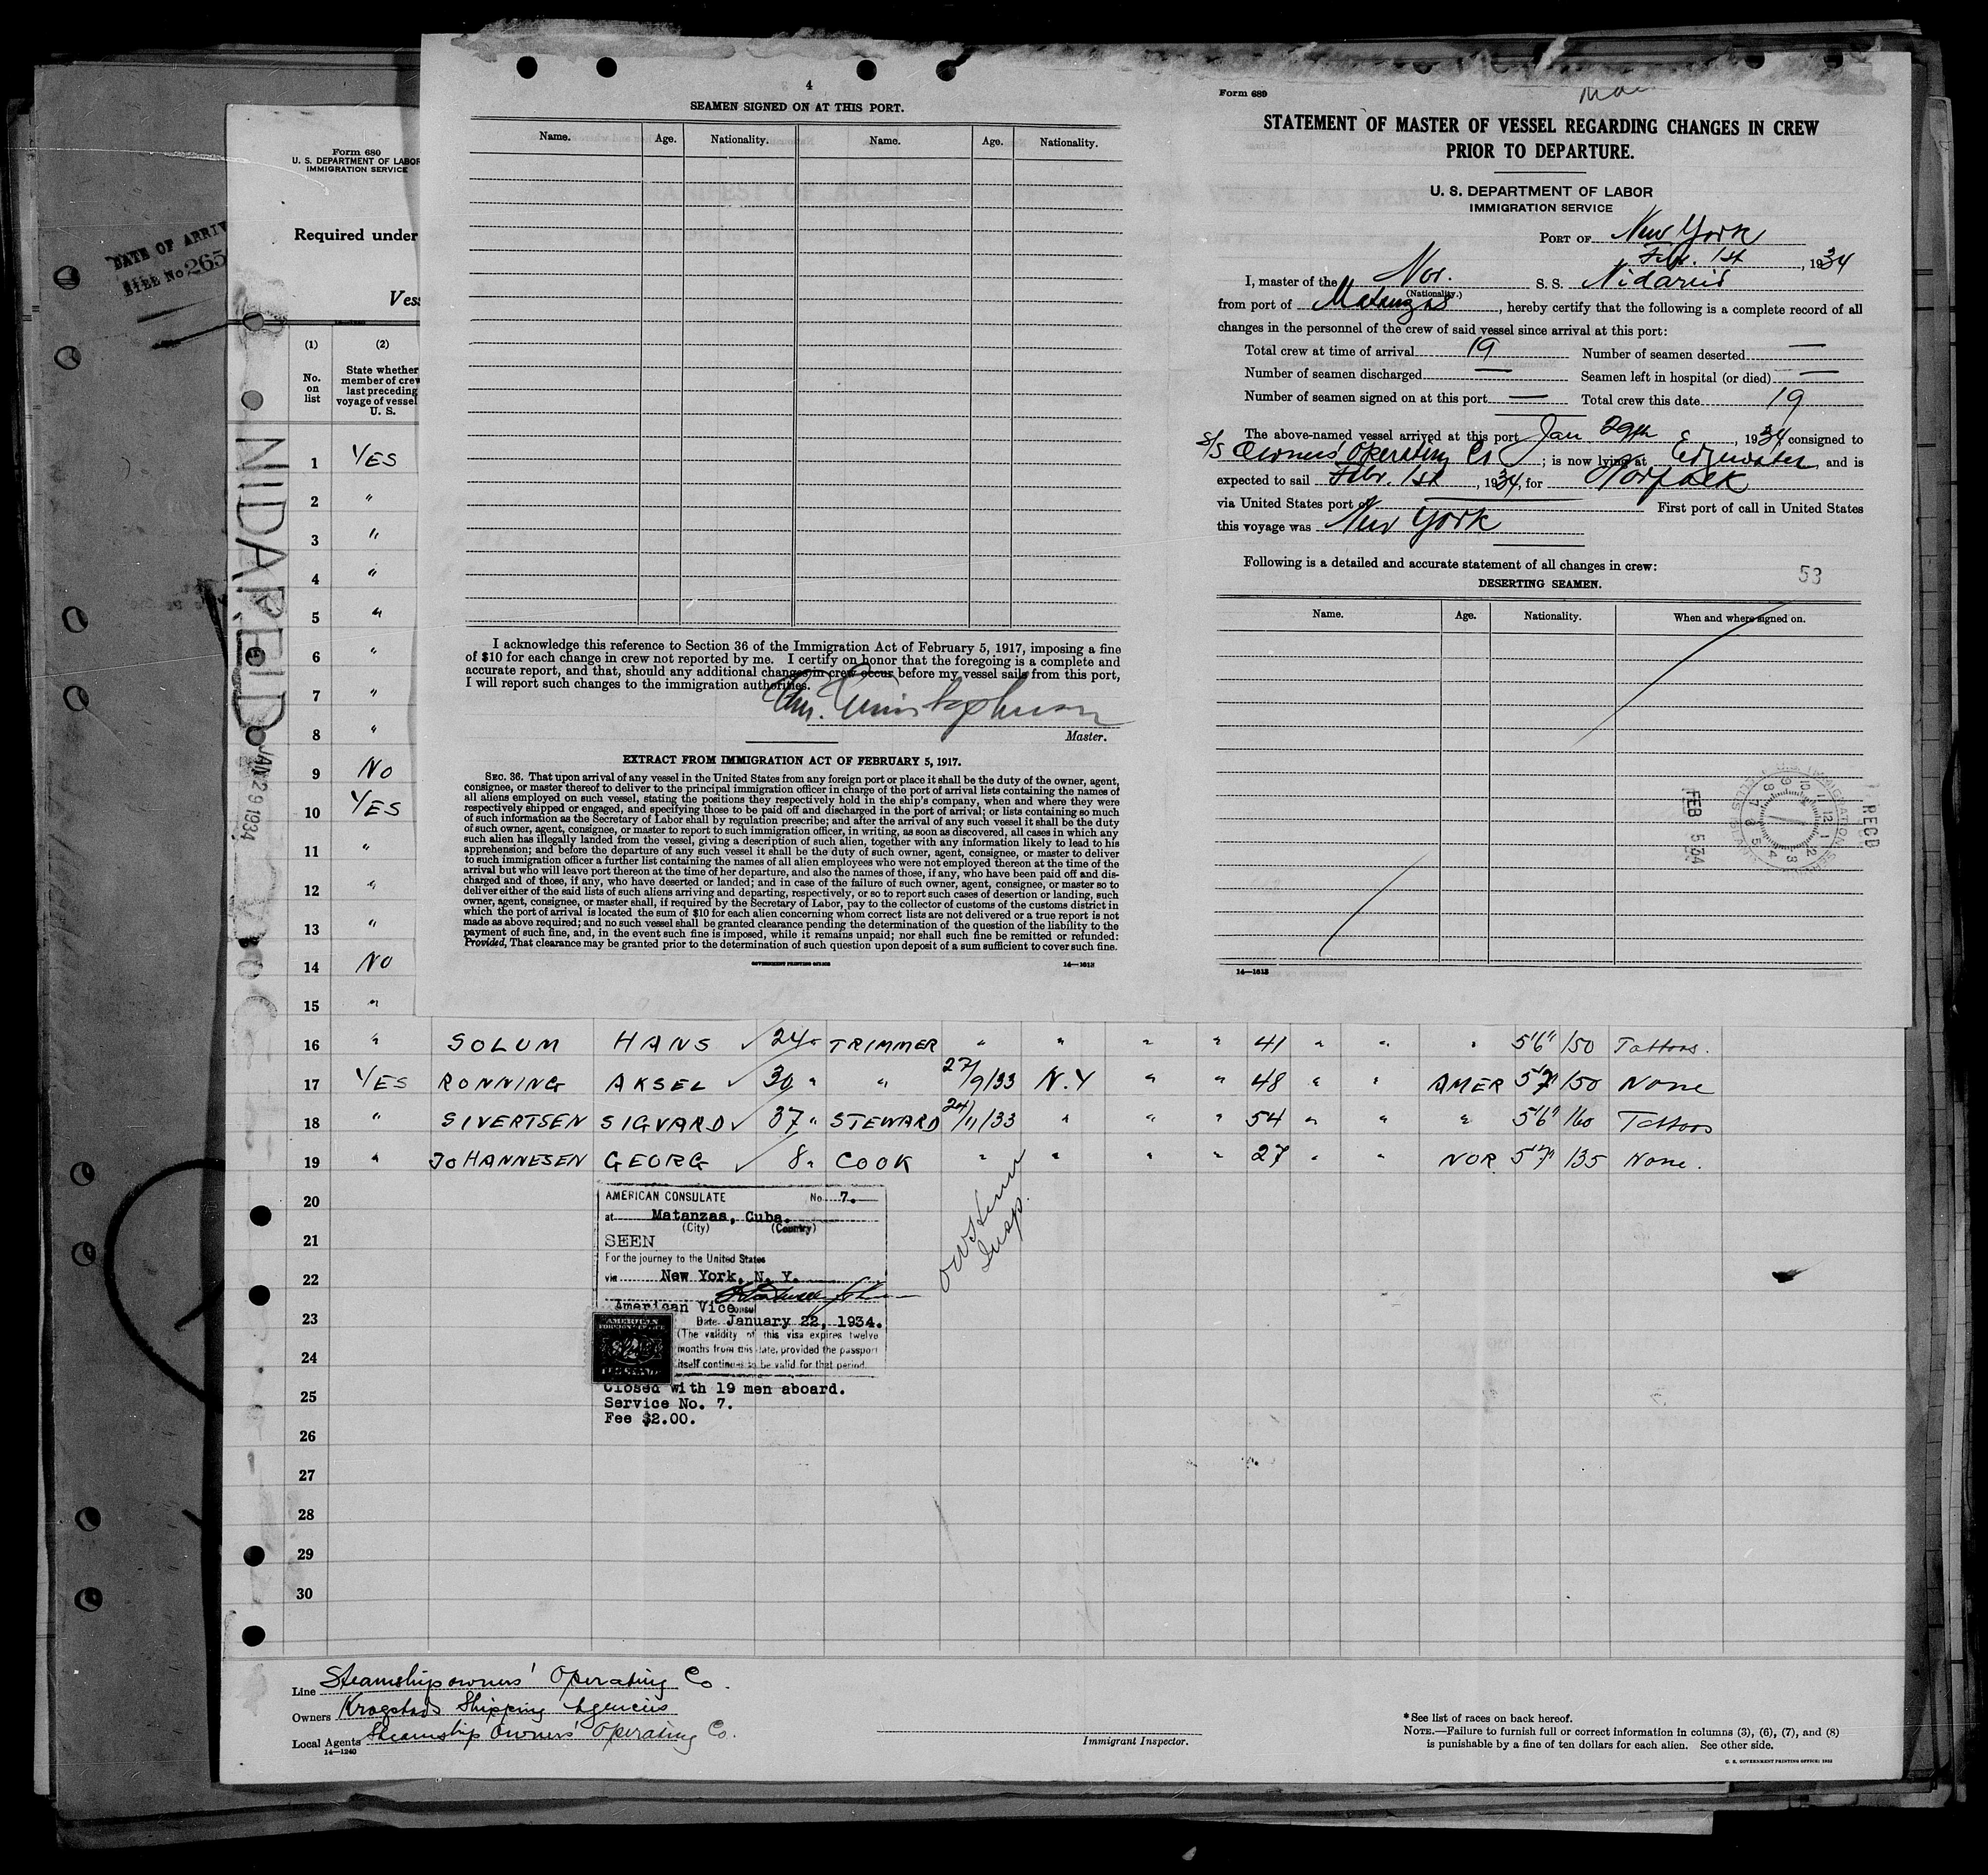 DATE OF ARRIV
STEE No 265
Form 680
U. S. DEPARTMENT OF LABOR
IMMIGRATION SERVICE
Required under
Vess
NIDAREID
JAN 29 1934
(1) (2)
No. on list
State whether member of crew last preceding voyage of vessel U. S.
1 YES
2 "
3 "
4 "
5 "
6 "
7 "
8 "
9 NO
10 YES
11 "
12 "
13 "
14 NO
15 "
4
SEAMEN SIGNED ON AT THIS PORT.
Name. Age. Nationality. Name. Age. Nationality.
I acknowledge this reference to Section 36 of the Immigration Act of February 5, 1917, imposing a fine
of $10 for each change in crew not reported by me. I certify on honor that the foregoing is a complete and
accurate report, and that, should any additional changes in crew occur before my vessel sails from this port,
I will report such changes to the immigration authorities.
Master.
EXTRACT FROM IMMIGRATION ACT OF FEBRUARY 5, 1917.
SEC. 36. That upon arrival of any vessel in the United States from any foreign port or place it shall be the duty of the owner, agent,
consignee, or master thereof to deliver to the principal immigration officer in charge of the port of arrival lists containing the names of
all aliens employed on such vessel, stating the positions they respectively hold in the ship's company, when and where they were
respectively shipped or engaged, and specifying those to be paid off and discharged in the port of arrival; or lists containing so much
of such information as the Secretary of Labor shall by regulation prescribe; and after the arrival of any such vessel it shall be the duty
of such owner, agent, consignee, or master to report to such immigration officer, in writing, as soon as discovered, all cases in which any
such alien has illegally landed from the vessel, giving a description of such alien, together with any information likely to lead to his
apprehension; and before the departure of any such vessel it shall be the duty of such owner, agent, consignee, or master to deliver
to such immigration officer a further list containing the names of all alien employees who were not employed thereon at the time of the
arrival but who will leave port thereon at the time of her departure, and also the names of those, if any, who have been paid off and dis-
charged and of those, if any, who have deserted or landed; and in case of the failure of such owner, agent, consignee, or master so to
deliver either of the said lists of such aliens arriving and departing, respectively, or so to report such cases of desertion or landing, such
owner, agent, consignee, or master shall, if required by the Secretary of Labor, pay to the collector of customs of the customs district in
which the port of arrival is located the sum of $10 for each alien concerning whom correct lists are not delivered or a true report is not
made as above required; and no such vessel shall be granted clearance pending the determination of the question of the liability to the
payment of such fine, and, in the event such fine is imposed, while it remains unpaid; nor shall such fine be remitted or refunded:
Provided, That clearance may be granted prior to the determination of such question upon deposit of a sum sufficient to cover such fine.
GOVERNMENT PRINTING OFFICE 14—1613
Form 689
STATEMENT OF MASTER OF VESSEL REGARDING CHANGES IN CREW
PRIOR TO DEPARTURE.
U. S. DEPARTMENT OF LABOR
IMMIGRATION SERVICE
PORT OF New York
Febr. 1st, 1934
I, master of the Nor. S. S. Nidareid
(Nationality.)
from port of Matanzas, hereby certify that the following is a complete record of all
changes in the personnel of the crew of said vessel since arrival at this port:
Total crew at time of arrival 19 Number of seamen deserted —
Number of seamen discharged — Seamen left in hospital (or died) —
Number of seamen signed on at this port — Total crew this date 19
The above-named vessel arrived at this port Jan 29th, 1934, consigned to
S/S Owners' Operating Co; is now lying at Edgewater and is
expected to sail Febr. 1st, 1934, for Norfolk
via United States port of First port of call in United States
this voyage was New York
Following is a detailed and accurate statement of all changes in crew:
53
DESERTING SEAMEN.
Name. Age. Nationality. When and where signed on.
FEB 5 34
RECD
14—1613
16 " SOLUM HANS 24 " TRIMMER " " " " 41 " " " 5'6" 150 Tattoos.
17 YES RONNING AKSEL 30 " " 27/9/33 N.Y " " 48 " " AMER 5'7" 150 None
18 " SIVERTSEN SIGVARD 37 " STEWARD 24/11/33 " " " 54 " " " 5'6" 160 Tattoos
19 " JOHANNESEN GEORG 8 " COOK " " " " 27 " " NOR. 5'7" 135 None.
20
21
22
23
24
25
26
27
28
29
30
AMERICAN CONSULATE No. 7.
at Matanzas, Cuba.
(City) (Country)
SEEN
For the journey to the United States
via New York, N. Y.
American Vice Consul
Date January 22, 1934.
(The validity of this visa expires twelve
months from this date, provided the passport
itself continues to be valid for that period.
Closed with 19 men aboard.
Service No. 7.
Fee $2.00.
Insp.
Line Steamship owners' Operating Co.
Owners Krogstads Shipping Agencies
Local Agents Steamship Owners' Operating Co.
14—1240
Immigrant Inspector.
*See list of races on back hereof.
NOTE.—Failure to furnish full or correct information in columns (3), (6), (7), and (8)
is punishable by a fine of ten dollars for each alien. See other side.
U. S. GOVERNMENT PRINTING OFFICE: 1932